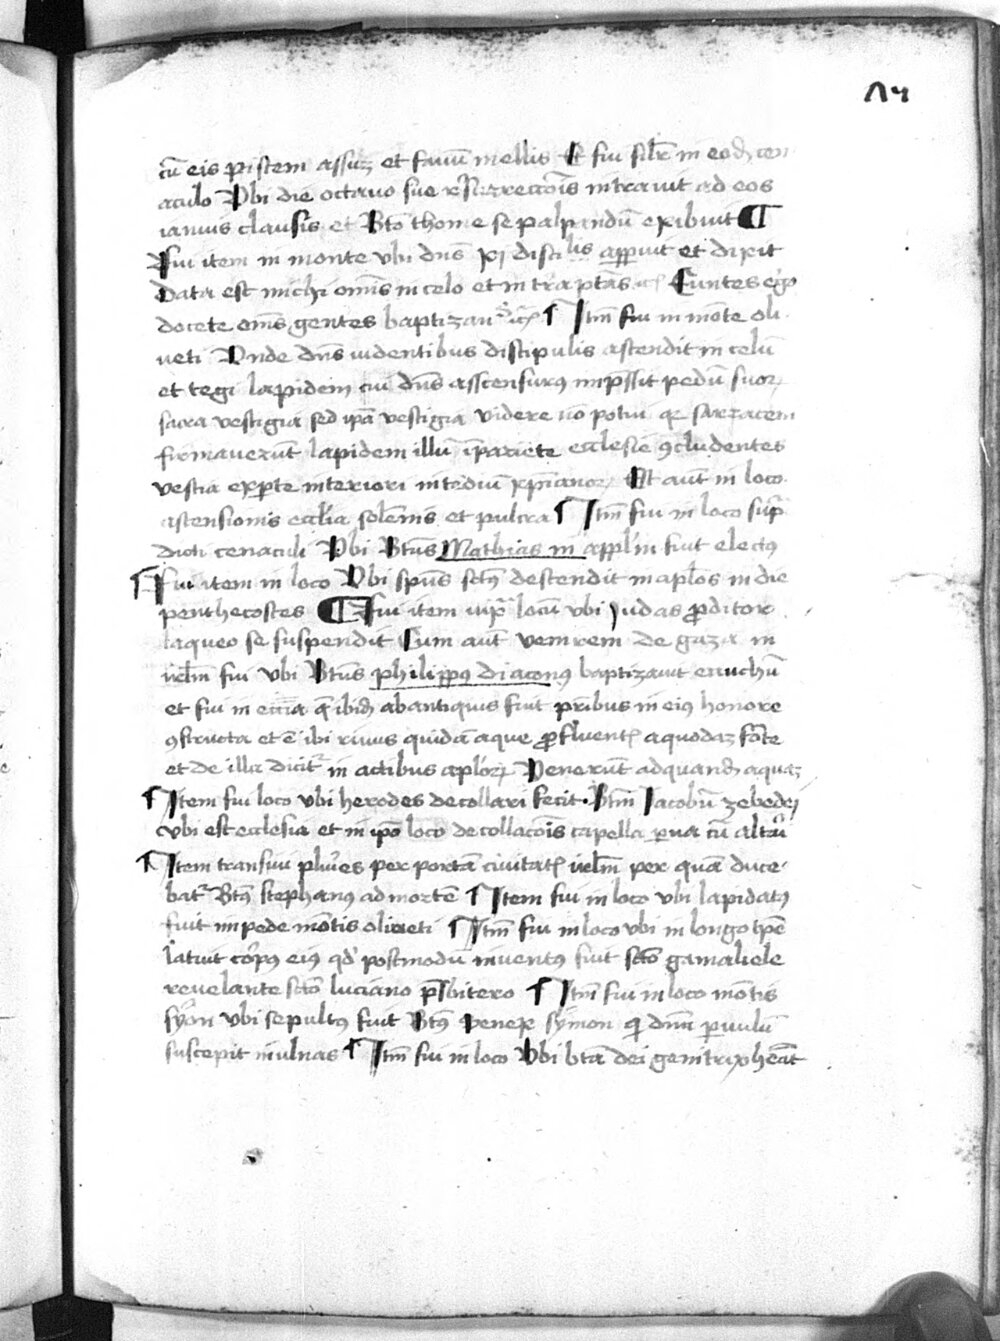 Λ4
cū eis pistem assuz et fauū mellis Et fui silr in eodz cen
aculo Vbi die octauo sue resurrectois intrauit ad eos
ianuis clausis et Bto thome se palpandū exibuit ¶
Fui item in monte vbi dns xi discilis apparuit et dixit
Data est michi omis in celo et in tra ptas Euntes ego
docete oms gentes baptizan ¶ Itm fui in mōte oli
ueti Unde dns uidentibus discipulis ascendit in celū
et tegi lapidem cui dns asscensurus impssit pedū suor
sacra vestigia sed ipa vestigia videre nō potui qr sarraceni
firmauerūt lapidem illū ipariete ecclesie ꝯcludentes
vestia exparte interiori intediū xpianor Est aut in loco
ascensionis ecclia solemis et pulcra ¶ Itm fui in loco supra
dicti cenaculi Vbi Btus Mathias in applm fuit electus
¶ Fui item in loco Vbi spus sctus descendit in aplos in die
penthecostes ¶ Fui item iuxa locū vbi Judas proditor
laqueo se suspendit Cum aut venirem de gaza in
irlm fui vbi Btus philippus diaconus baptizauit eunuchū
et fui in eccia q ibidz abantiquis fuit pribus in eius honore
ꝯstructa et ē ibi riuus quidā aque profluentis aquodaz fōte
et de illa dicitr in actibus aplor Venerūt adquandz aquaz
¶ Item fui loco vbi herodes decollari fecit Btm Jacobū zebedei
vbi est ecclesia et in ipo loco decollacois capella parua cū altari
¶ Item transiui plures per portā ciuitatis irlm per quā duce
batr Btus stephanus ad mortē ¶ Item fui in loco vbi lapidatus
fuit inpede mōtis oliueti ¶ Itm fui in loco vbi in longo tpe
latuit corpus eius qd postmodū inuentus fuit scto gamaliele
reuelante scto luciano psbitero ¶ Itm fui in loco mōtis
syon vbi sepultus fuit Btus senex symon qi dnm paruulū
suscepit in ulnas ¶ Itm fui in loco Vbi bta dei genitrix